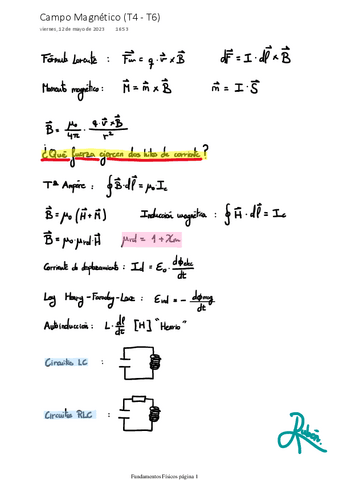 Campo Magnético (T4 - T6)
viernes, 12 de mayo de 2023 16:53
Fórmula Lorentz : F⃗m = q · v⃗ × B⃗ dF⃗ = I · dl⃗ × B⃗
Momento magnético : M⃗ = m⃗ × B⃗ m⃗ = I · S⃗
B⃗ = μ₀/4π · q · v⃗ × B⃗ / r²
¿Qué fuerza ejercen dos hilos de corriente?
Tª Ampère : ∮ B⃗ · dl⃗ = μ₀ Ic
B⃗ = μ₀ (H⃗ + M⃗) Inducción magnética : ∮ H⃗ · dl⃗ = Ic
B⃗ = μ₀ · μrel · H⃗ μrel = 1 + χm
Corriente de desplazamiento : Id = ε₀ · dϕelec/dt
Ley Henry - Faraday - Lenz : Eind = - dϕmag/dt
Autoinducción : L · dI/dt [H] "Henrio"
Circuito LC :
Circuitos RLC :
Rubén
Fundamentos Físicos página 1